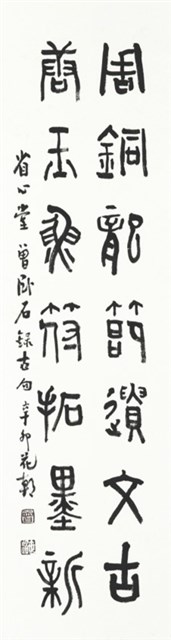 周銅龍節遺文古
唐玉魚符拓墨新
省心堂曾臥石錄古句辛卯花朝